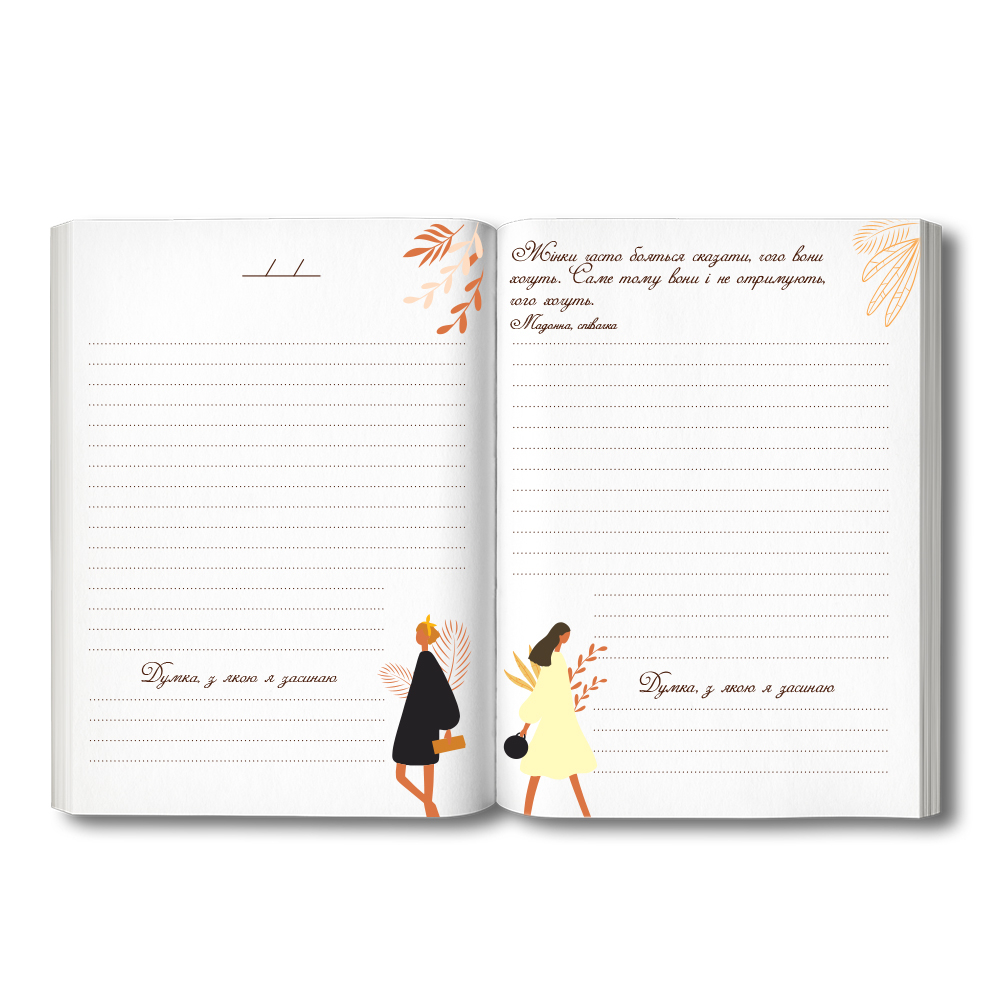 __/__/__
Думка, з якою я засинаю
Жінки часто бояться сказати, чого вони
хочуть. Саме тому вони і не отримують,
чого хочуть.
Мадонна, співачка
Думка, з якою я засинаю